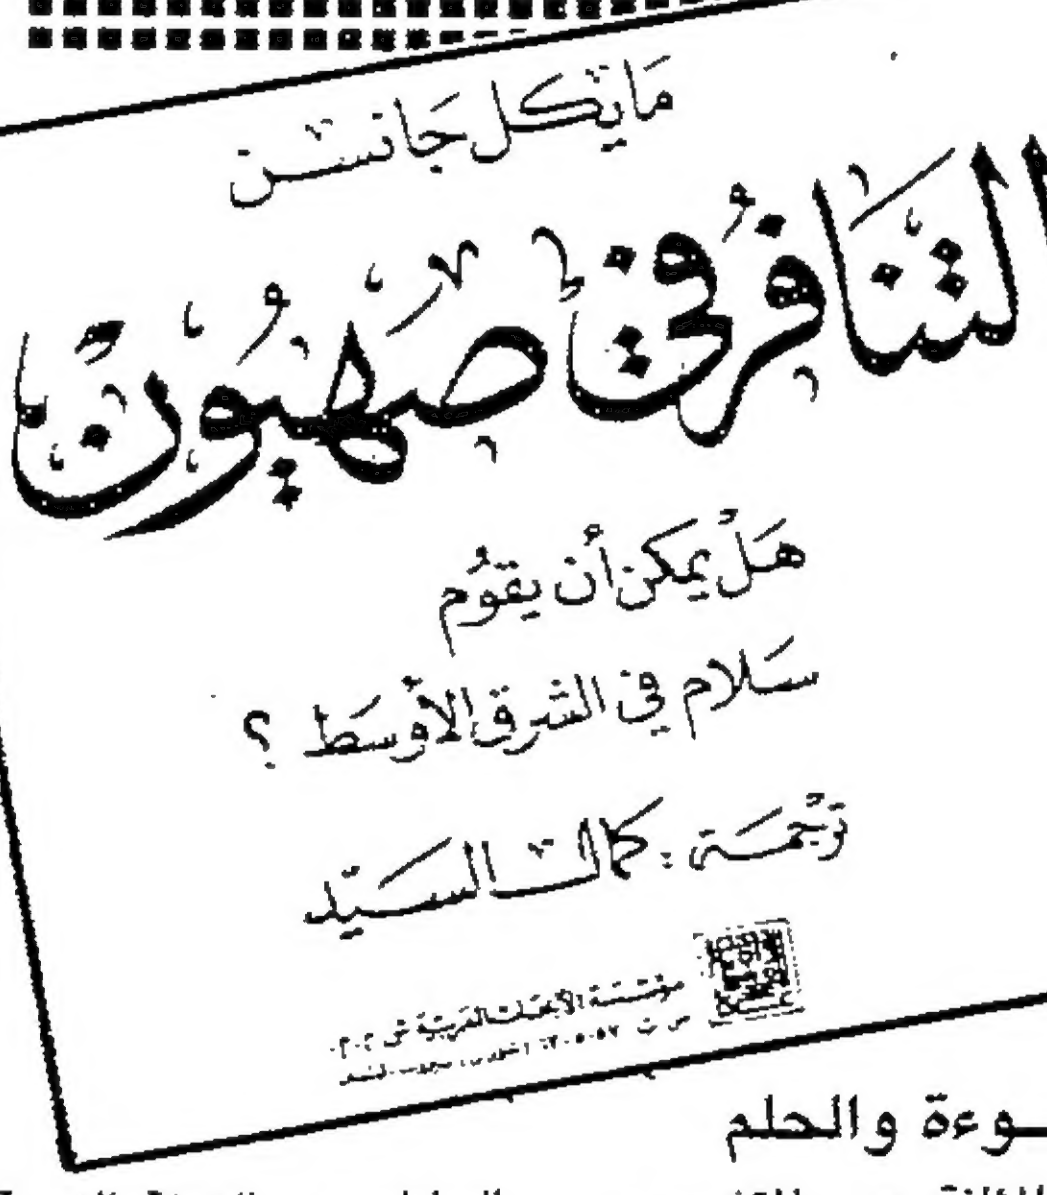 مَايكل جَانسن
التنَافُر في صهيُون
هَل يمكن أن يقوُم
سَلام في الشرق الأوسَط ؟
ترجمَة : كمال السيّد
مؤسسَة الأبحَاث العَربيَّة ش.م.م.
والحلم